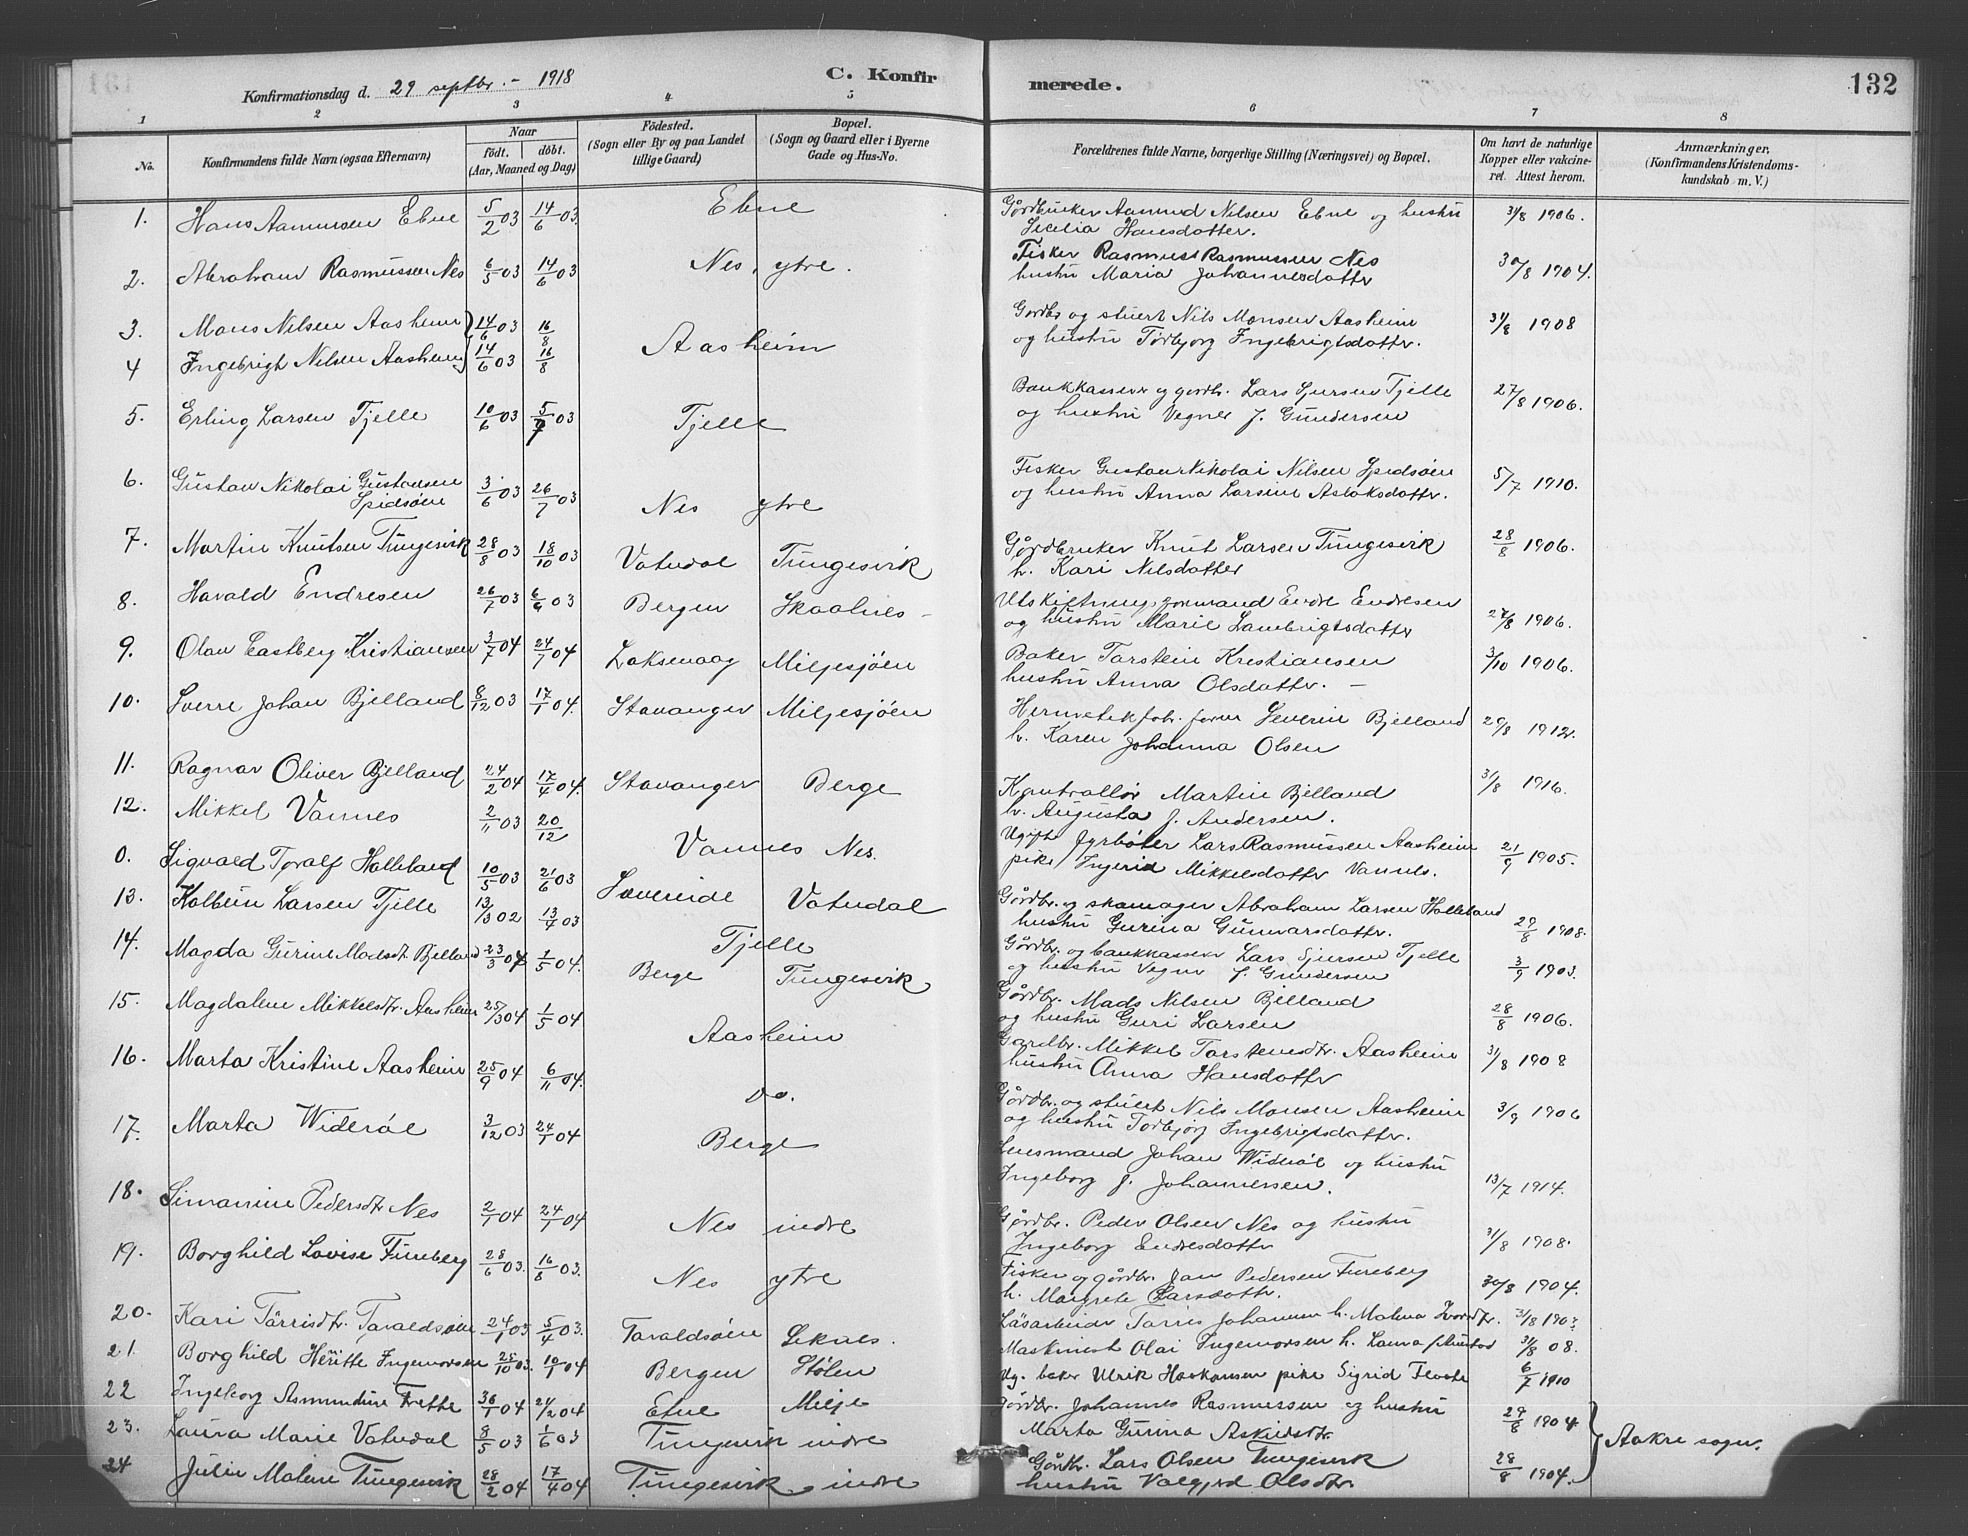 132
Konfirmationsdag d. 29 septbr. - 1918
C. Konfirmerede.
1 2 3 4 5 6 7 8
No.
Konfirmandens fulde Navn (ogsaa Efternavn)
Naar
födt. döbt.
(Aar, Maaned og Dag)
Födested.
(Sogn eller By og paa Landet
tillige Gaard)
Bopæl.
(Sogn og Gaard eller i Byerne
Gade og Hus-No.
Forældrenes fulde Navne, borgerlige Stilling (Næringsvei) og Bopæl.
Om havt de naturlige
Kopper eller vakcine-
ret. Attest herom.
Anmærkninger,
(Konfirmandens Kristendoms-
kundskab m. V.)
1. Hans Aamunsen Ebne 5/2 03 14/6 03. Ebne Gårdbruker Aamund Nilsen Ebne og hustru 31/8 1906.
Secilia Hansdatter.
2. Abraham Rasmussen Nes 6/5 03 14/6 03 Nes, ytre. Fisker Rasmus Rasmussen Nes 30/8 1904.
hustru Maria Johannesdatter
3. Mons Nilsen Aasheim 14/6 03 16/8 Aasheim Gårdbr og stuert Nils Monsen Aasheim 31/8 1908
4 Ingebrigt Nilsen Aasheim 14/6 03 16/8 og hustru Torbjorg Ingebrigtsdatter.
5. Erling Larsen Tjelle 10/6 03 5/7 03 Tjelle Bankkasserer og gardbr. Lars Sjursen Tjelle 27/8 1906.
og hustru Vegner J. Gundersen
6. Gustav Nikolai Gustavsen Spidsöen 3/6 03 26/7 03 Nes ytre Fisker Gustav Nikolai Nilsen Spidsöen 5/7 1910.
og hustru Anna Larsine Aslaksdatter.
7. Martin Knutsen Tungesvik 28/8 03 18/10 03 Vatndal Tungesvik Gårdbruker Knut Larsen Tungesvik 28/8 1906.
h. Kari Nilsdatter
8. Harald Endresen 26/7 03 6/9 03 Bergen Skaalnes - Utskiftningsformand Endre Endresen 27/8 1906.
og hustru Marie Lambrigtsdatter
9. Olav Eastberg Kristiansen 3/7 04 24/7 04 Laksevaag Miljesjöen Baker Torstein Kristiansen 3/10 1906.
hustru Anna Olsdatter. -
10. Sverre Johan Bjelland 8/12 03 17/1 04. Stavanger Miljesjöen Hermetikfabr. form Severin Bjelland 29/8 1912.
h. Karen Johanna Olsen
11. Ragnar Oliver Bjelland 24/2 04 17/4 04. Stavanger Berge Kontrollör Martin Bjelland 31/8 1916.
h. Augusta J. Andersen.
12. Mikkel Vannes 2/11 03 20/12 Vannes Nes. Ugift Fyrböter Lars Rasmussen Aasheim 21/9 1905.
pike Ingerid Mikkelsdatter Vannes.
0. Sigvald Toralf Halleland 10/5 03 21/6 03 Sævereide Vatndal Gårdbr. og skomager Abraham Larsen Halleland 29/8 1908.
hustru Gurina Gunnarsdatter.
13. Kolbein Larsen Tjelle 13/3 02 13/4 03 Tjelle Gårdbr. og bankkasserer Lars Sjursen Tjelle 3/9 1903.
og hustru Vegner J. Gundersen
14. Magda Gurine Madsdt. Bjelland 23/3 04 1/5 04. Berge Tungesvik Gårdbr. Mads Nilsen Bjelland 28/8 1906.
og hustru Guri Larsen
15. Magdalene Mikkelsdtr. Aasheim 25/3 04 1/5 04 Aasheim Gardbr. Mikkel Torstensdtr. Aasheim 31/8 1908
hustru Anna Hansdatter
16. Marta Kristine Aasheim 25/9 04 6/11 04. Do. Gårdbr. og stuert Nils Monsen Aasheim 3/9 1906
og hustru Torbjörg Ingebrigtsdatter.
17. Marta Wideröe 3/12 03 24/1 04 Berge Lensmand Johan Wideröe og hustru 13/7 1914.
Ingeborg J. Johannessen.
18. Simanine Pedersdtr Nes 2/1 04 24/1 04 Nes indre Gårdbr. Peder Olsen Nes og hustru 31/8 1908.
Ingeborg Endresdatter
19. Borghild Lovise Fureberg 28/6 03. 16/8 03. Nes ytre Fisker og gårdbr. Jan Pedersen Fureberg 30/8 1904.
h. Margrete Larsdottr.
20. Kari Tärrisdtr. Taraldsöen 24/1 03 5/4 03. Taraldsöen Leknes. Läsarbeider Tarris Johannesen h. Malena 31/8
21. Borghild Heritte Ingemorsen 28/10 03. 10/1 04 Bergen Stölen Maskinist Olai Ingemorsen h. Laura 31/8 08.
22 Ingeborg Asmundine Frette 30/1 04 21/2 04 Etne Milje Ug. baker Ulrik Haakonsen pike Sigrid 6/7 1910
23. Laura Marie Vatndal 8/5 03 1/6 03 Tungesvik indre Gårdbr. Johannes Rasmussen og hustru 29/8 1904.
Marta Gurina Askildsdtr.
Aakre sogn.
24 Julie Malene Tungesvik 28/2 04 17/4 04 Tungesvik indre Gårdbr. Lars Olsen Tungesvik 28/8 1904.
hustru Valgjerd Olsdtr.